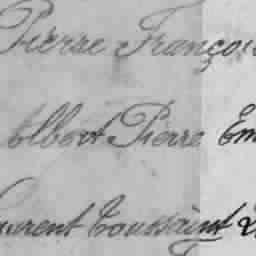 Pierre François
Albert Pierre Em
Laurent Toussaint